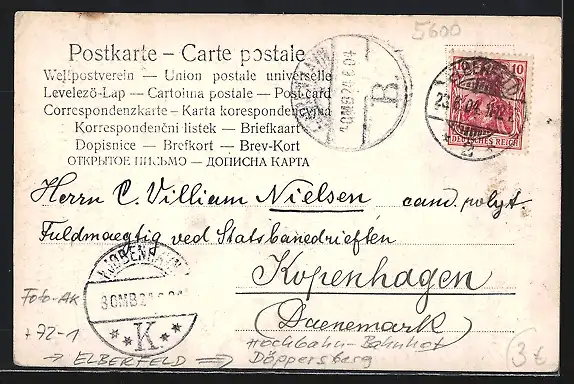 5600
Postkarte – Carte postale
Weltpostverein — Union postale universelle
Levelező-Lap — Cartolina postale — Post card
Correspondenzkarte — Karta korespondencyjna
Korrespondenční listek — Briefkaart
Dopisnice — Brefkort — Brev-Kort
ОТКРЫТОЕ ПИСЬМО — ДОПИСНА КАРТА
B.
10
ELBERFELD
23.6.04
DEUTSCHES REICH
Herrn C. William Nielsen cand. polyt
Fuldmaegtig ved Statsbanedrieften
KJOBENHAVN
3OMB24.6.04
K.
Kopenhagen
(Daenemark)
Foto-AK
+72-1
→ ELBERFELD ⇒ Hochbahn-Bahnhof
Döppersberg
3€